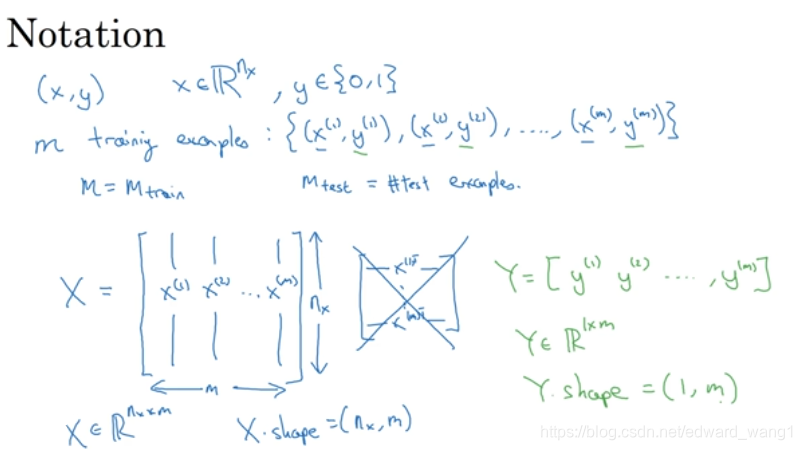 Notation
(x,y) x∈ℝ^{n_x}, y∈{0,1}
m trainiy examples : {(x^{(1)}, y^{(1)}), (x^{(2)}, y^{(2)}), ...., (x^{(m)}, y^{(m)})}
M = M_{train} M_{test} = #test examples.
X = [ x^{(1)} x^{(2)} ... x^{(m)} ] n_x
m
x^{(1)T}
x^{(m)T}
Y = [ y^{(1)} y^{(2)} ...., y^{(m)} ]
Y ∈ ℝ^{1×m}
Y.shape = (1, m)
X ∈ ℝ^{n_x×m} X.shape = (n_x, m)
https://blog.csdn.net/edward_wang1